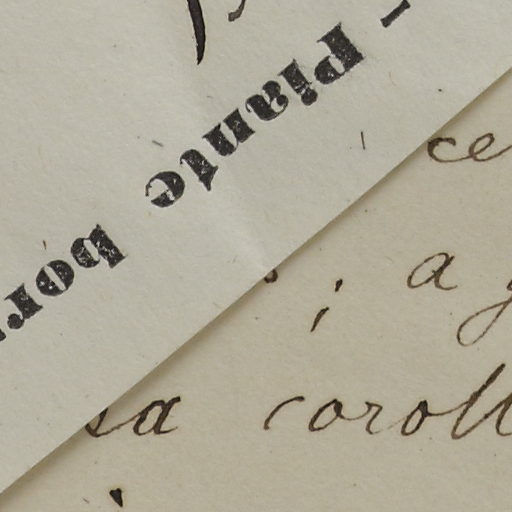 - Piante bor
ce
; a
sa coroll